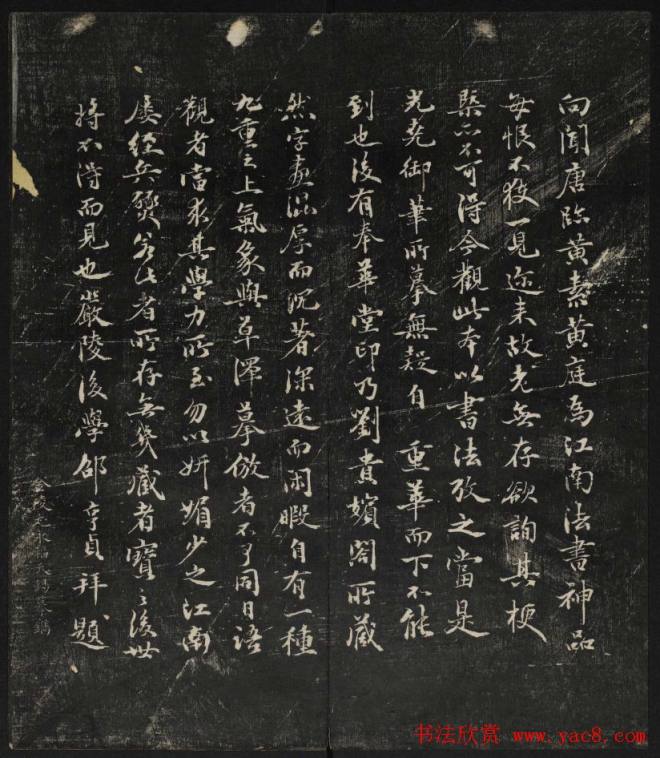 向聞唐臨黃素黃庭為江南法書神品
每恨不獲一見迩来故老無存欲詢其梗
槩亦不可得今觀此本以書法攷之當是
光堯御筆所摹無疑自 重華而下不能
到也後有奉華堂印乃劉貴嬪閣所藏
然字畫溫厚而沉著深遠而閑暇自有一種
九重之上氣象與草澤摹倣者不可同日語
觀者當求其學力所至勿以妍媚少之江南
屢經兵燹若此者所存無幾藏者寶之後世
將不得而見也嚴陵後學邵亨貞拜題
书法欣赏 www.yac8.com